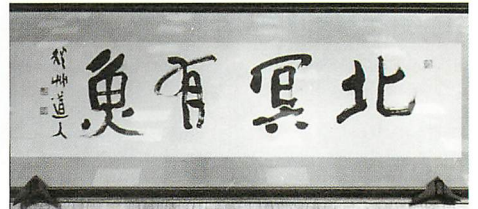 北冥有魚
秋艸道人